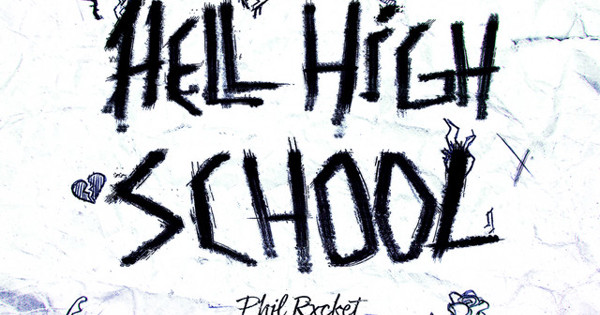 HELL HiGH
SCHOOL
Phil Rxcket